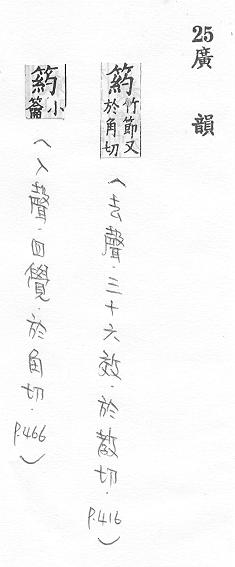 25 廣韻
箹 竹節又於角切 (去聲.三十六效.於教切.P.416)
箹 小籥 (入聲.四覺.於角切.P.466)